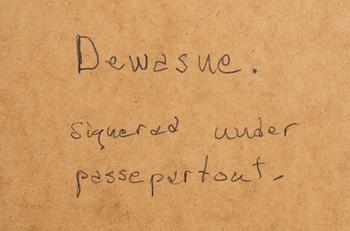 Dewasne.
signerad under
passepartout.